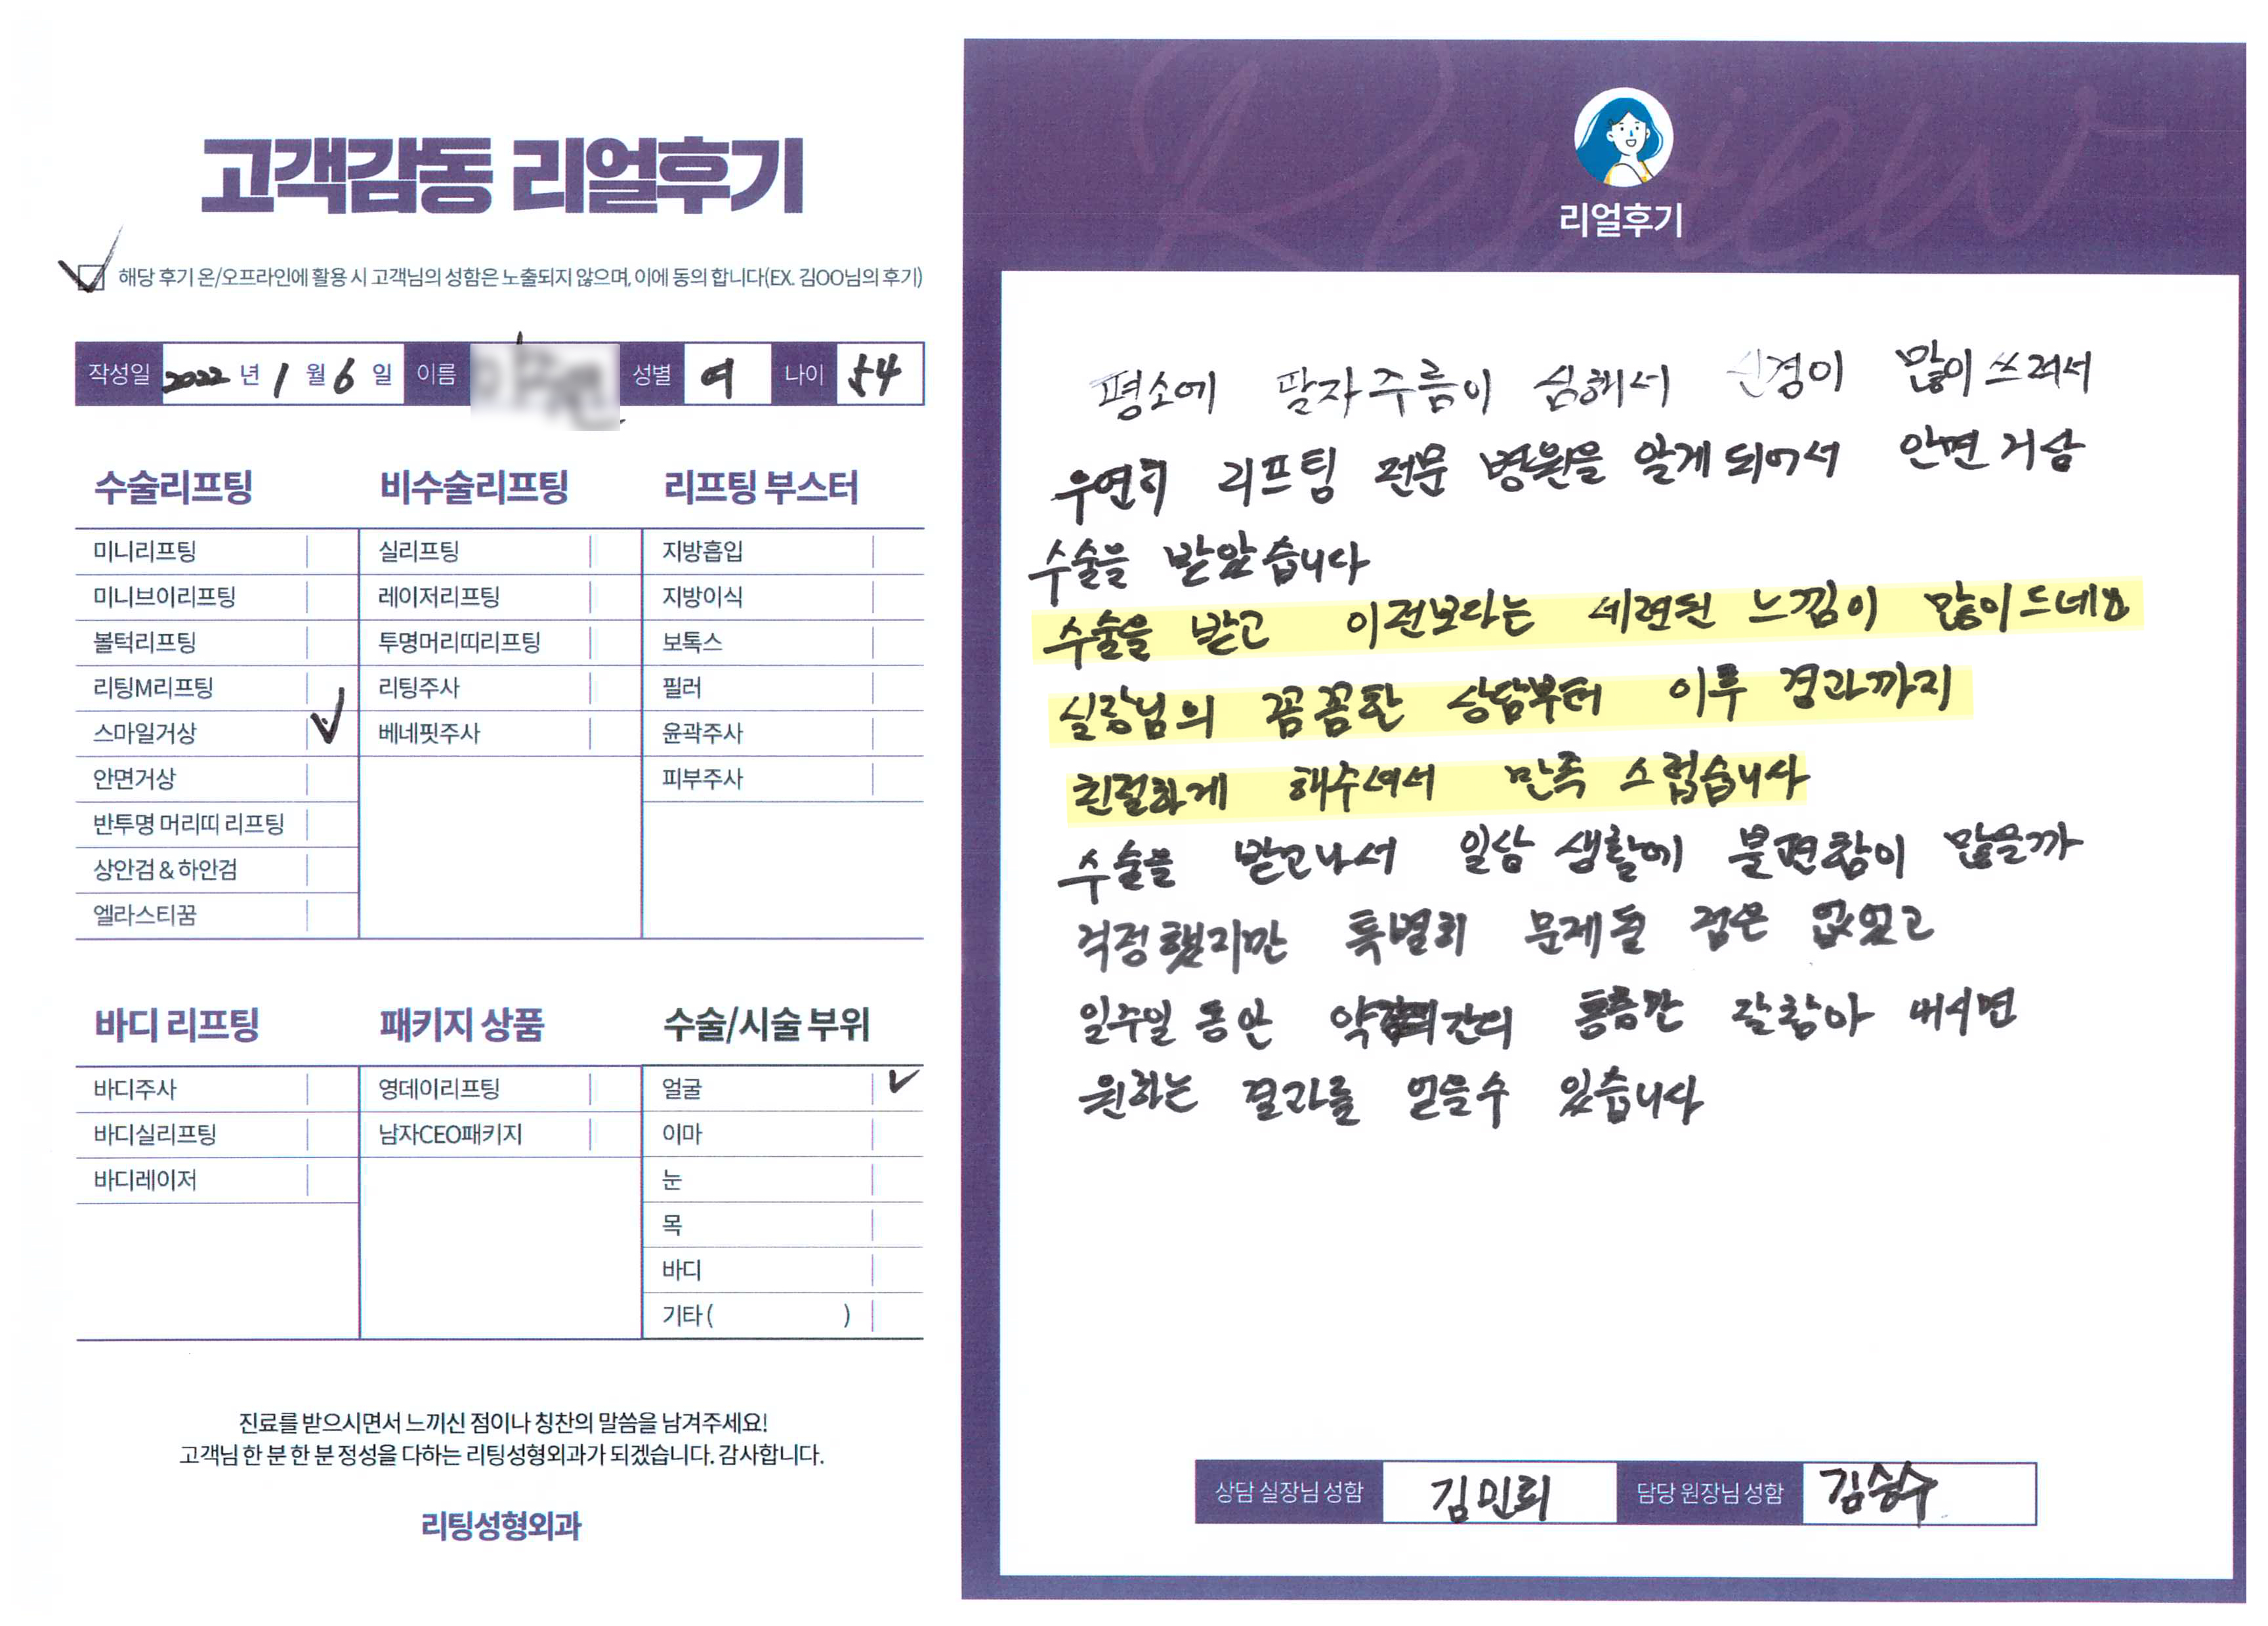 고객감동 리얼후기
해당 후기 온/오프라인에 활용 시 고객님의 성함은 노출되지 않으며, 이에 동의 합니다(EX. 김OO님의 후기)
작성일 2022 년 1 월 6 일 이름 성별 여 나이 54
수술리프팅
미니리프팅
미니브이리프팅
볼턱리프팅
리팅M리프팅
스마일거상
안면거상
반투명 머리띠 리프팅
상안검 & 하안검
엘라스티꿈
비수술리프팅
실리프팅
레이저리프팅
투명머리띠리프팅
리팅주사
베네핏주사
리프팅 부스터
지방흡입
지방이식
보톡스
필러
윤곽주사
피부주사
바디 리프팅
바디주사
바디실리프팅
바디레이저
패키지 상품
영데이리프팅
남자CEO패키지
수술/시술 부위
얼굴
이마
눈
목
바디
기타 ( )
진료를 받으시면서 느끼신 점이나 칭찬의 말씀을 남겨주세요!
고객님 한 분 한 분 정성을 다하는 리팅성형외과가 되겠습니다. 감사합니다.
리팅성형외과
Review
리얼후기
평소에 팔자주름이 심해서 신경이 많이 쓰려서
우연히 리프팅 전문 병원을 알게 되어서 안면 거상
수술을 받았습니다
수술을 받고 이전보다는 세련된 느낌이 많이 드네요
실장님의 꼼꼼한 상담부터 이후 경과까지
친절하게 해주셔서 만족 스럽습니다
수술을 받고나서 일상 생활에 불편함이 많을까
걱정했지만 특별히 문제될 점은 없었고
일주일 동안 약간의 통증만 잘참아 내시면
원하는 결과를 얻을수 있습니다
상담 실장님 성함 김민희 담당 원장님 성함 김승수